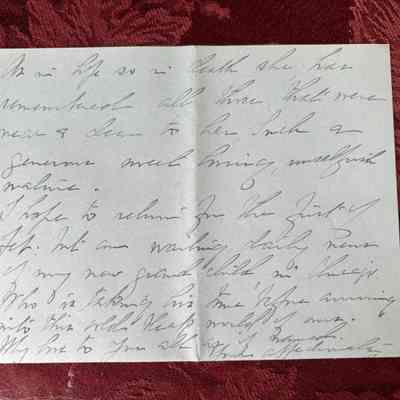 As in life so in death she has
remembered all those that were
near & dear to her. Such a
generous sweet loving, unselfish
nature.
I hope to return for the first of
Feb. but am waiting daily news
of my new grand child in Chicago
Who is taking his time before arriving
into this old world of ours.
My love to you all
affectionately